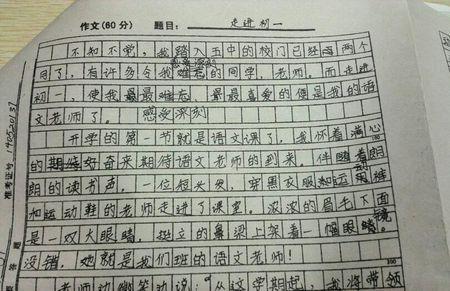 作文(60分) 题目: 走进初一
不知不觉，我踏入五中的校门已经有两个
感受深刻
月了，有许多令我难忘的同学，老师。而走进
初一，使我最难忘，最喜爱的便是我的语
文老师了。 感受深刻
开学的第一节就是语文课了，我怀着满心
的好奇来期待语文老师的到来。伴随着朗
朗的读书声，一位短头发，穿黑衣服和运动裤
和运动鞋的老师走进了课室。浓浓的眉毛下面
是一双大眼睛，挺立的鼻梁上架着一幅眼镜。
没错，她就是我们班的语文老师！
300
老师动微笑动说："从这学期起，我将带领
准考证号 190520137